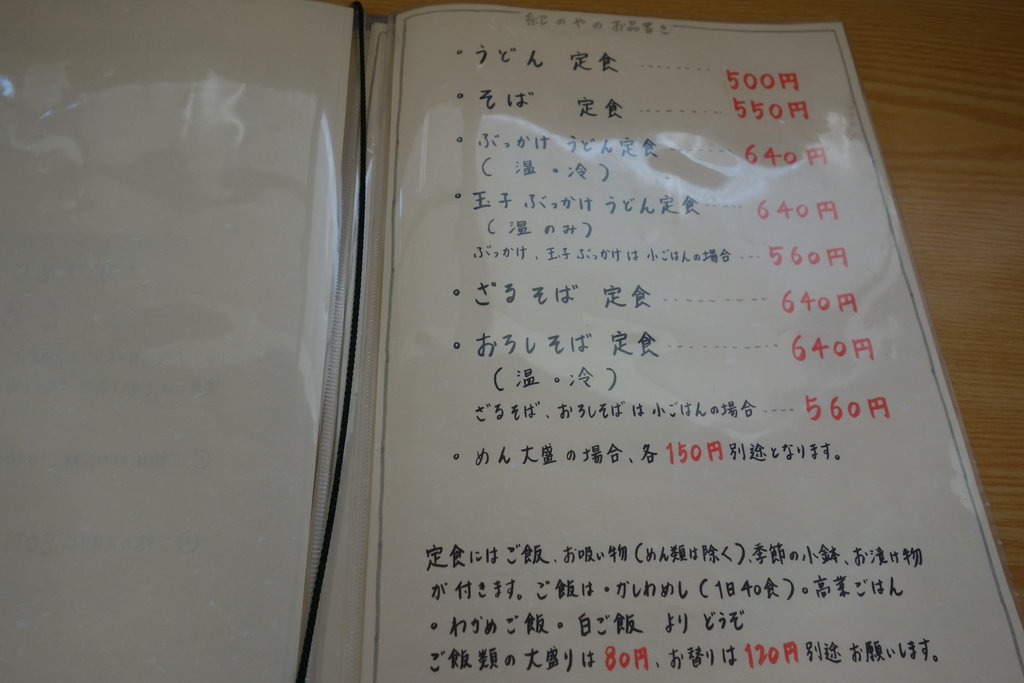 紀のやのお品書き
• うどん 定食 ‥‥‥‥ 500円
• そば 定食 ‥‥‥‥ 550円
• ぶっかけ うどん定食 ‥‥‥‥ 640円
( 温 • 冷 )
• 玉子 ぶっかけ うどん定食 ‥‥ 640円
( 温 のみ )
ぶっかけ、玉子 ぶっかけ は 小ごはんの場合 ‥‥ 560円
• ざる そば 定食 ‥‥‥‥ 640円
• おろし そば 定食 ‥‥‥‥ 640円
( 温 • 冷 )
ざるそば、おろしそば は 小ごはんの場合 ‥‥ 560円
• めん 大盛 の場合、各 150円 別途となります。
定食には ご飯、お吸い物 (めん類は除く)、季節の小鉢、お漬け物
が 付きます。ご飯は • かしわめし (1日40食) • 高菜ごはん
• わかめ ご飯 • 白ご飯 より どうぞ
ご飯類の 大盛りは 80円、お替りは 120円 別途 お願いします。